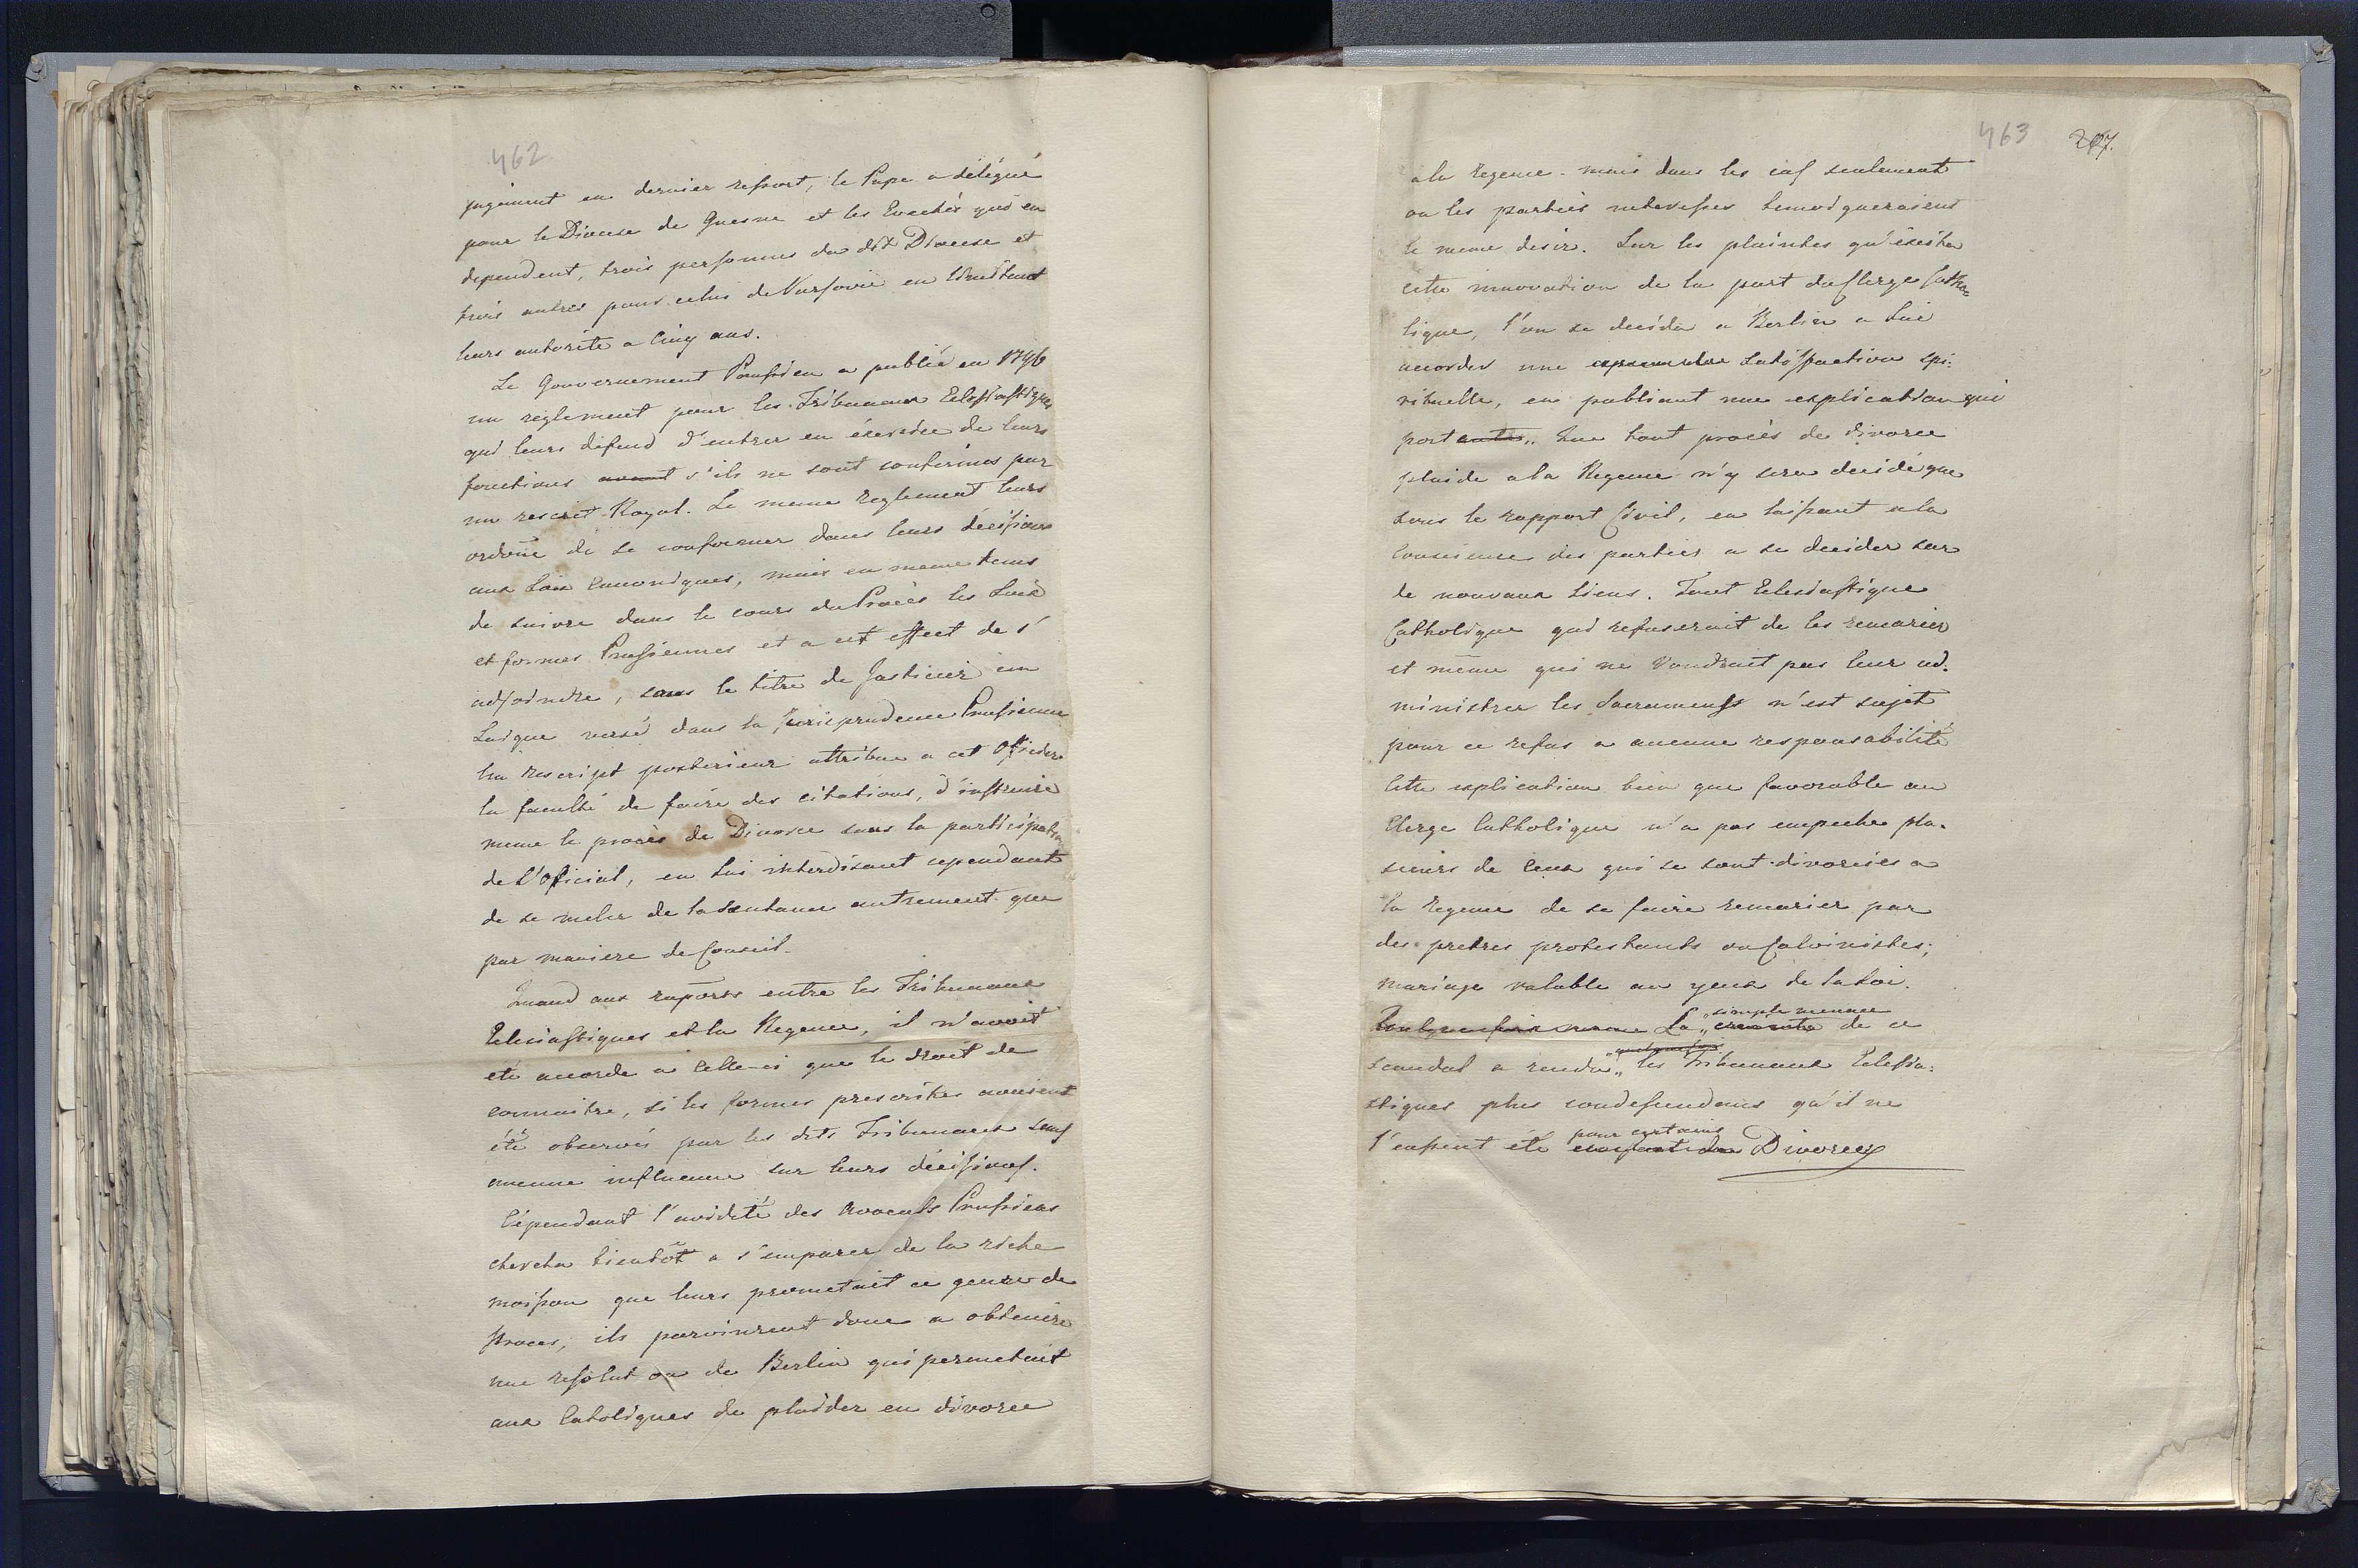 462
jugement en dernier ressort, le Pape a délégué
pour le Diocese de Gnesne et les Evechés qui en
dependent, trois personnes du dit Diocese et
trois autres pour celui de Varsovie en limitant
leurs autorité a cinq ans.
Le Gouvernement Prussien a publié en 1796
un reglement pour les Tribunaux Eclesiastiques
qui leurs défend d'entrer en éxercice de leurs
fonctions avant s'ils ne sont confirmés par
un rescrit Royal. Le meme reglement leurs
ordone de se conformer dans leurs décisions
aux Loix Canoniques, mais en meme tems
de suivre dans le cours du Procès les Loix
et formes Prussiennes et a cet effect de s'
adjoindre, sous le titre de Justicier un
Laique versé dans la Jurisprudence Prussienne
Un Rescript posterieur attribue a cet Officier
la faculté de faire des citations, d'instruire
meme le procès de Divorce sans la participation
de l'Official, en lui interdisant cependant
de se meler de la sentance autrement que
par maniere de Conseil.
Quand aux raports entre les Tribunaux
Eclesiastiques et la Regence, il n'avoit
été accordé a Celle-ci que le droit de
connaitre, si les formes prescrites avoient
été observés par les dits Tribunaux sans
aucune influence sur leurs décisions.
Cépendant l'avidité des Avocats Prussiens
chercha bientôt a s'emparer de la riche
moisson que leurs prometait ce genre de
Proces, ils parvinrent donc a obtenire
une resolution de Berlin qui permetait
aux Catoliques de plaider en divorce
463 207.
a la regence. mais dans les cas seulement
ou les parties interessées temoigneraient
le meme desir. Sur les plaintes qu'éxcita
cette innovation de la part du Clergé Catho=
lique, l'on se decida a Berlin a lui
accorder une satisfaction spi:
rituelle, en publiant une explication qui
port Que tout procès de divorce
plaidé a la Regence n'y sera decidé que
sous le rapport Civil, en laissant a la
Conscience des parties a se decider sur
de nouveaux liens. Tout Eclesiastique
Catholique qui refuserait de les remarier
et même qui ne Voudrait pas leur ad=
ministrer les Sacraments n'est sujet
pour ce refus a aucune responsabilité
Cette explication bien que favorable au
Clergé Catholique n'a pas empeche plu=
sieurs de Ceux qui se sont divorcées a
la Regence de se faire remarier par
des pretres protestants ou Calvinistes;
mariage valable au yeux de la Loi.
simple menace
La crainte de ce
quelquefois
scandal a rendu les Tribunaux Eclesia=
stiques plus condescendans qu'il ne
pour certains
l'eussent été Divorces